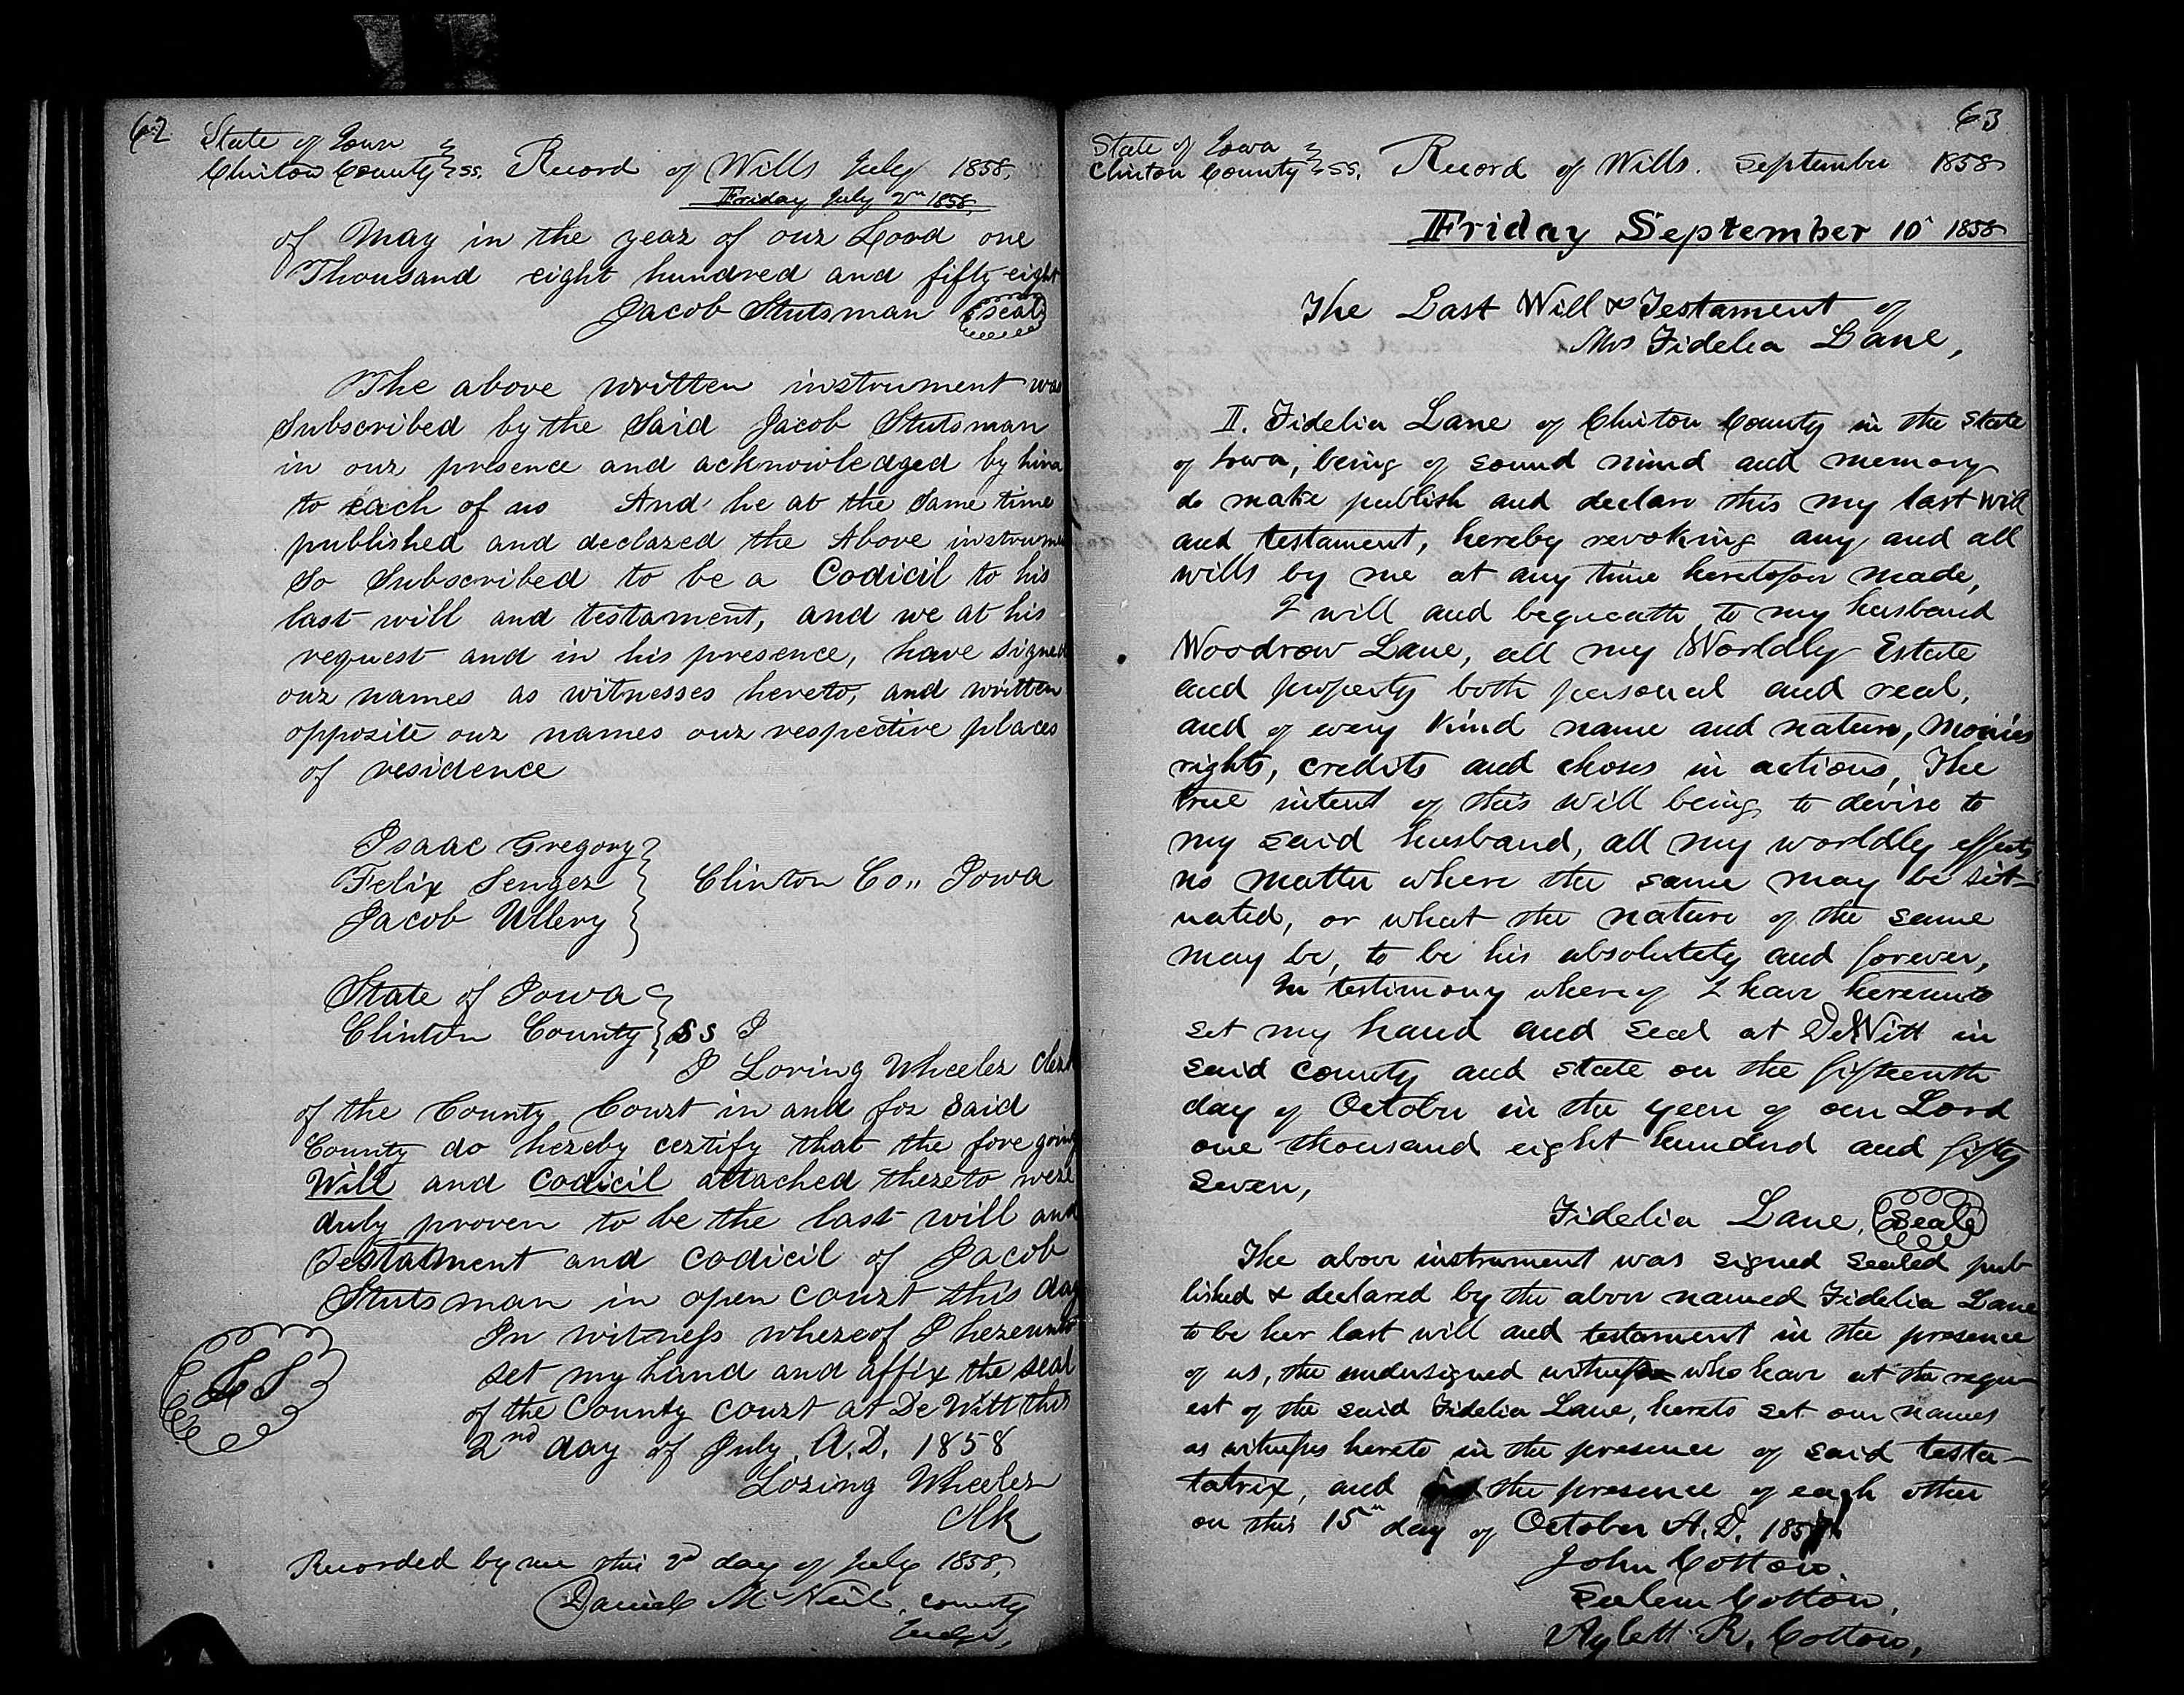 62
State of Iowa
Clinton County } ss. Record of Wills July 1858.
Friday July 2nd 1858.
of May in the year of our Lord one
Thousand eight hundred and fifty eight
Jacob Stutsman (seal)
The above written instrument was
Subscribed by the Said Jacob Stutsman
in our presence and acknowledged by him
to each of us And he at the Same time
published and declared the Above instrume
So Subscribed to be a Codicil to his
last will and testament, and we at his
request and in his presence, have signed
our names as witnesses hereto, and written
opposite our names our respective places
of residence
Isaac Gregory
Felix Senger } Clinton Co,, Iowa
Jacob Ullery
State of Iowa
Clinton County } ss I
I Loring Wheeler Clerk
of the County Court in and for Said
County do hereby certify that the fore going
Will and Codicil attached thereto were
duly proven to be the last will and
Testatment and codicil of Jacob
Stutsman in open court this day
In witness whereof I hereunto
set my hand and affix the seal
of the County court at De Witt this
2nd day of July A.D. 1858
LS
Loring Wheeler
Clk
Recorded by me this 2d day of July 1858,
Daniel McNeil, county
Judge,
63
State of Iowa
Clinton County } ss. Record of Wills. September 1858
Friday September 10th 1858
The Last Will & Testament of
Mrs Fidelia Lane,
I. Fidelia Lane of Clinton County in the State
of Iowa, being of sound mind and memory
do make publish and declare this my last will
and testament, hereby revoking any and all
wills by me at any time heretofore made,
I will and bequeath to my husband
Woodrow Lane, all my Worldly Estate
and property both personal and real,
and of every kind name and nature, Monies
rights, credits and choses in actions, The
true intent of this will being to devise to
my said husband, all my worldly effects
no matter where the same may be sit-
uated, or what the nature of the same
may be, to be his absolutely and forever,
In testimony whereof I have hereunto
set my hand and seal at DeWitt in
said county and state on the fifteenth
day of October in the year of our Lord
one thousand eight hundred and fifty
seven,
Fidelia Lane, (Seal)
The above instrument was signed sealed pub-
lished & declared by the above named Fidelia Lane
to be her last will and testament in the presence
of us, the undersigned witness who have at the requ-
est of the said Fidelia Lane, hereto set our names
as witnesses hereto in the presence of said testa-
tatrix, and in the presence of each other
on this 15th day of October A.D. 1857
John Cotton.
Salem Cotton,
Aylett R. Cotton,